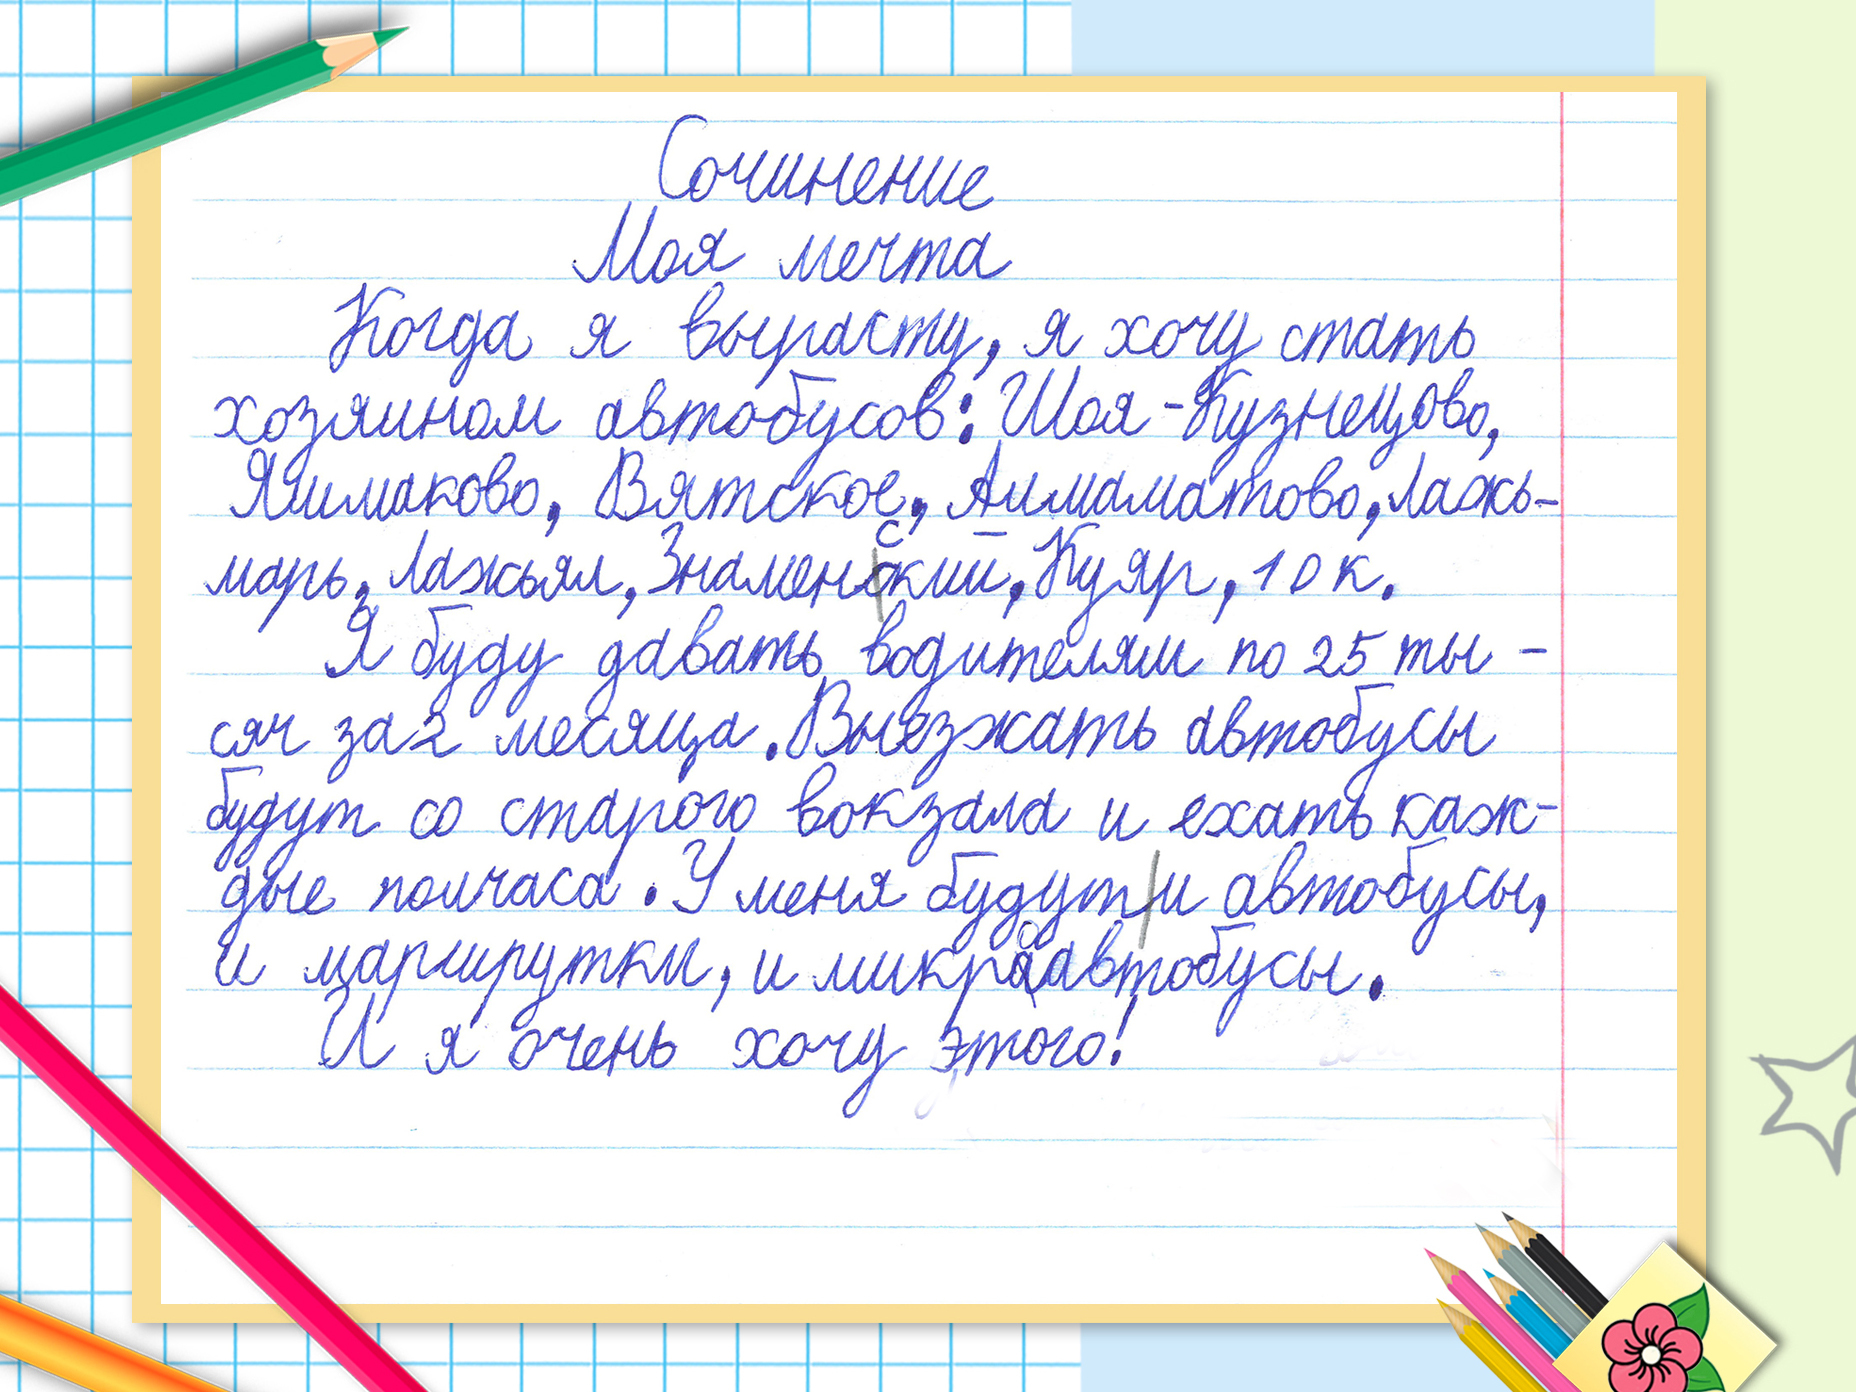 Сочинение
Моя мечта
Когда я вырасту, я хочу стать
хозяином автобусов: Шоя-Кузнецово,
Яшмаково, Вятское, Алмаматово, Лажь-
марь, Лажъял, Знаменский, Куяр, 10 к.
Я буду давать водителям по 25 ты-
сяч за 2 месяца. Выезжать автобусы
будут со старого вокзала и ехать каж-
дые полчаса. У меня будут и автобусы,
и маршрутки, и микроавтобусы.
И я очень хочу этого!